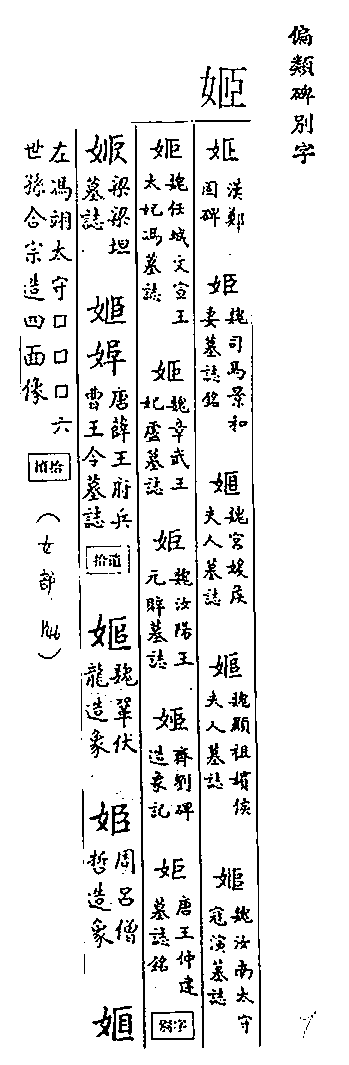 偏類碑別字
姬
姬 漢鄭固碑 姬 魏司馬景和妻墓誌銘 姬 魏宮嬪侯夫人墓誌 姬 魏顯祖嬪侯夫人墓誌 姬 魏汝南太守寇演墓誌
姬 魏任城文宣王太妃馮墓誌 姬 魏章武王妃盧墓誌 姬 魏汝陽王元晬墓誌 姬 齊劉碑造象記 姬 唐王仲建墓誌銘 別字
姬 梁梁坦墓誌 姬 唐薛王府兵曹王令墓誌 拾遺 姬 魏鞏伏龍造象 姬 周呂僧哲造象 姬
左馮翊太守口口口六世孫合宗造四面像 拾補 (女部 P.46)